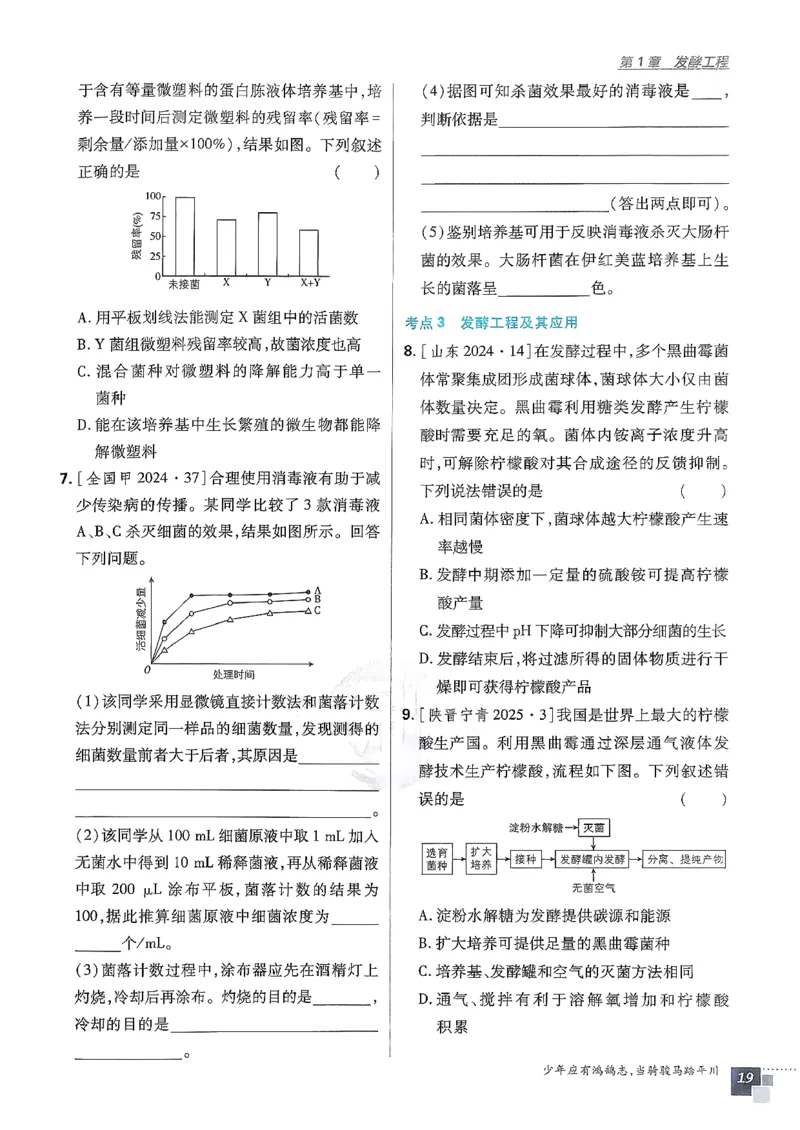 第1章 发酵工程
于含有等量微塑料的蛋白胨液体培养基中,培
养一段时间后测定微塑料的残留率(残留率=
剩余量/添加量×100%),结果如图。下列叙述
正确的是 ( )
残留率(%)
100
75
50
25
0
未接菌 X Y X+Y
A. 用平板划线法能测定X菌组中的活菌数
B. Y菌组微塑料残留率较高,故菌浓度也高
C. 混合菌种对微塑料的降解能力高于单一
菌种
D. 能在该培养基中生长繁殖的微生物都能降
解微塑料
7. [全国甲2024·37]合理使用消毒液有助于减
少传染病的传播。某同学比较了3款消毒液
A、B、C杀灭细菌的效果,结果如图所示。回答
下列问题。
活细菌减少量
A
B
C
O
处理时间
(1)该同学采用显微镜直接计数法和菌落计数
法分别测定同一样品的细菌数量,发现测得的
细菌数量前者大于后者,其原因是________
________
________。
(2)该同学从100 mL细菌原液中取1 mL加入
无菌水中得到10 mL稀释菌液,再从稀释菌液
中取200 μL涂布平板,菌落计数的结果为
100,据此推算细菌原液中细菌浓度为______
______个/mL。
(3)菌落计数过程中,涂布器应先在酒精灯上
灼烧,冷却后再涂布。灼烧的目的是_______,
冷却的目的是________
________。
(4)据图可知杀菌效果最好的消毒液是____,
判断依据是________
________
________
________(答出两点即可)。
(5)鉴别培养基可用于反映消毒液杀灭大肠杆
菌的效果。大肠杆菌在伊红美蓝培养基上生
长的菌落呈________色。
考点3 发酵工程及其应用
8. [山东2024·14]在发酵过程中,多个黑曲霉菌
体常聚集成团形成菌球体,菌球体大小仅由菌
体数量决定。黑曲霉利用糖类发酵产生柠檬
酸时需要充足的氧。菌体内铵离子浓度升高
时,可解除柠檬酸对其合成途径的反馈抑制。
下列说法错误的是 ( )
A. 相同菌体密度下,菌球体越大柠檬酸产生速
率越慢
B. 发酵中期添加一定量的硫酸铵可提高柠檬
酸产量
C. 发酵过程中pH下降可抑制大部分细菌的生长
D. 发酵结束后,将过滤所得的固体物质进行干
燥即可获得柠檬酸产品
9. [陕晋宁青2025·3]我国是世界上最大的柠檬
酸生产国。利用黑曲霉通过深层通气液体发
酵技术生产柠檬酸,流程如下图。下列叙述错
误的是 ( )
淀粉水解糖→灭菌
选育菌种→扩大培养→接种→发酵罐内发酵→分离、提纯产物
无菌空气
A. 淀粉水解糖为发酵提供碳源和能源
B. 扩大培养可提供足量的黑曲霉菌种
C. 培养基、发酵罐和空气的灭菌方法相同
D. 通气、搅拌有利于溶解氧增加和柠檬酸
积累
少年应有鸿鹄志,当骑骏马踏平川
19